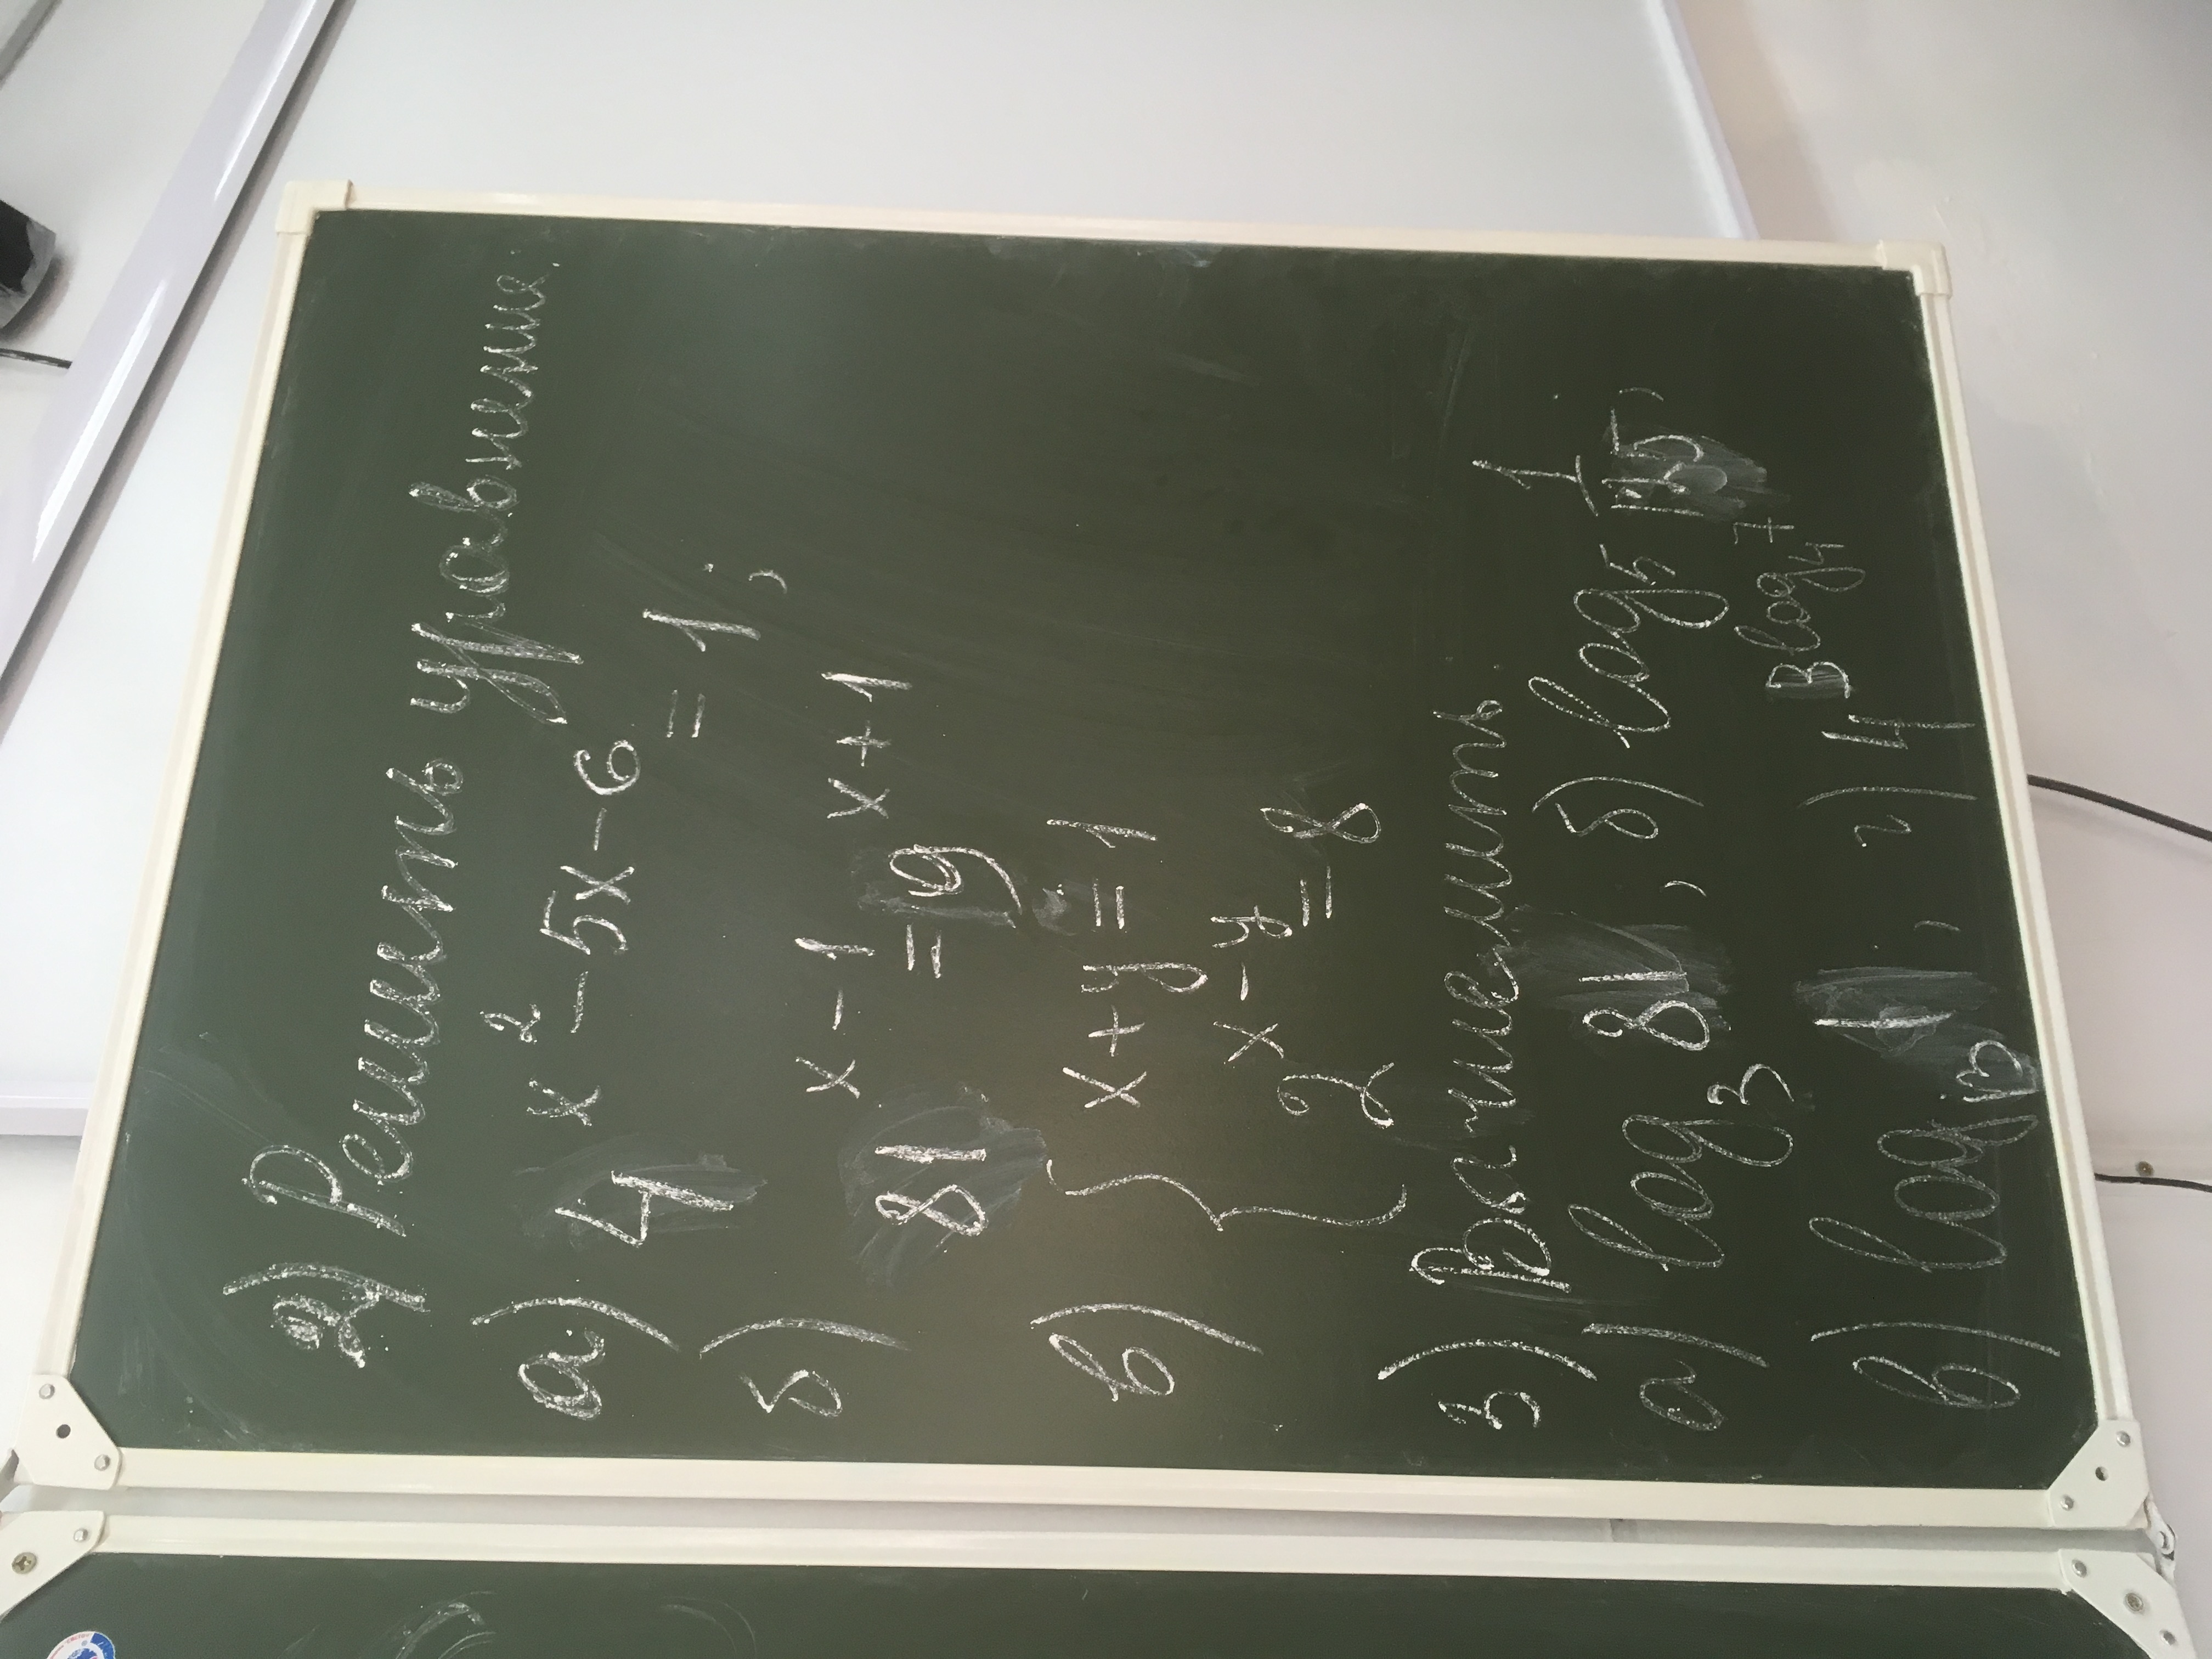 2) Решить уравнение:
а) 4^(x²-5x-6) = 1;
б) 81^(x-1) = 9^(x+1)
в) { x+y = 1
2^(x-y) = 8
3) Вычислить:
а) log₃ 81, б) log₅ 1/125,
в) log₁₃ 1, г) 4^(log₄ 7)